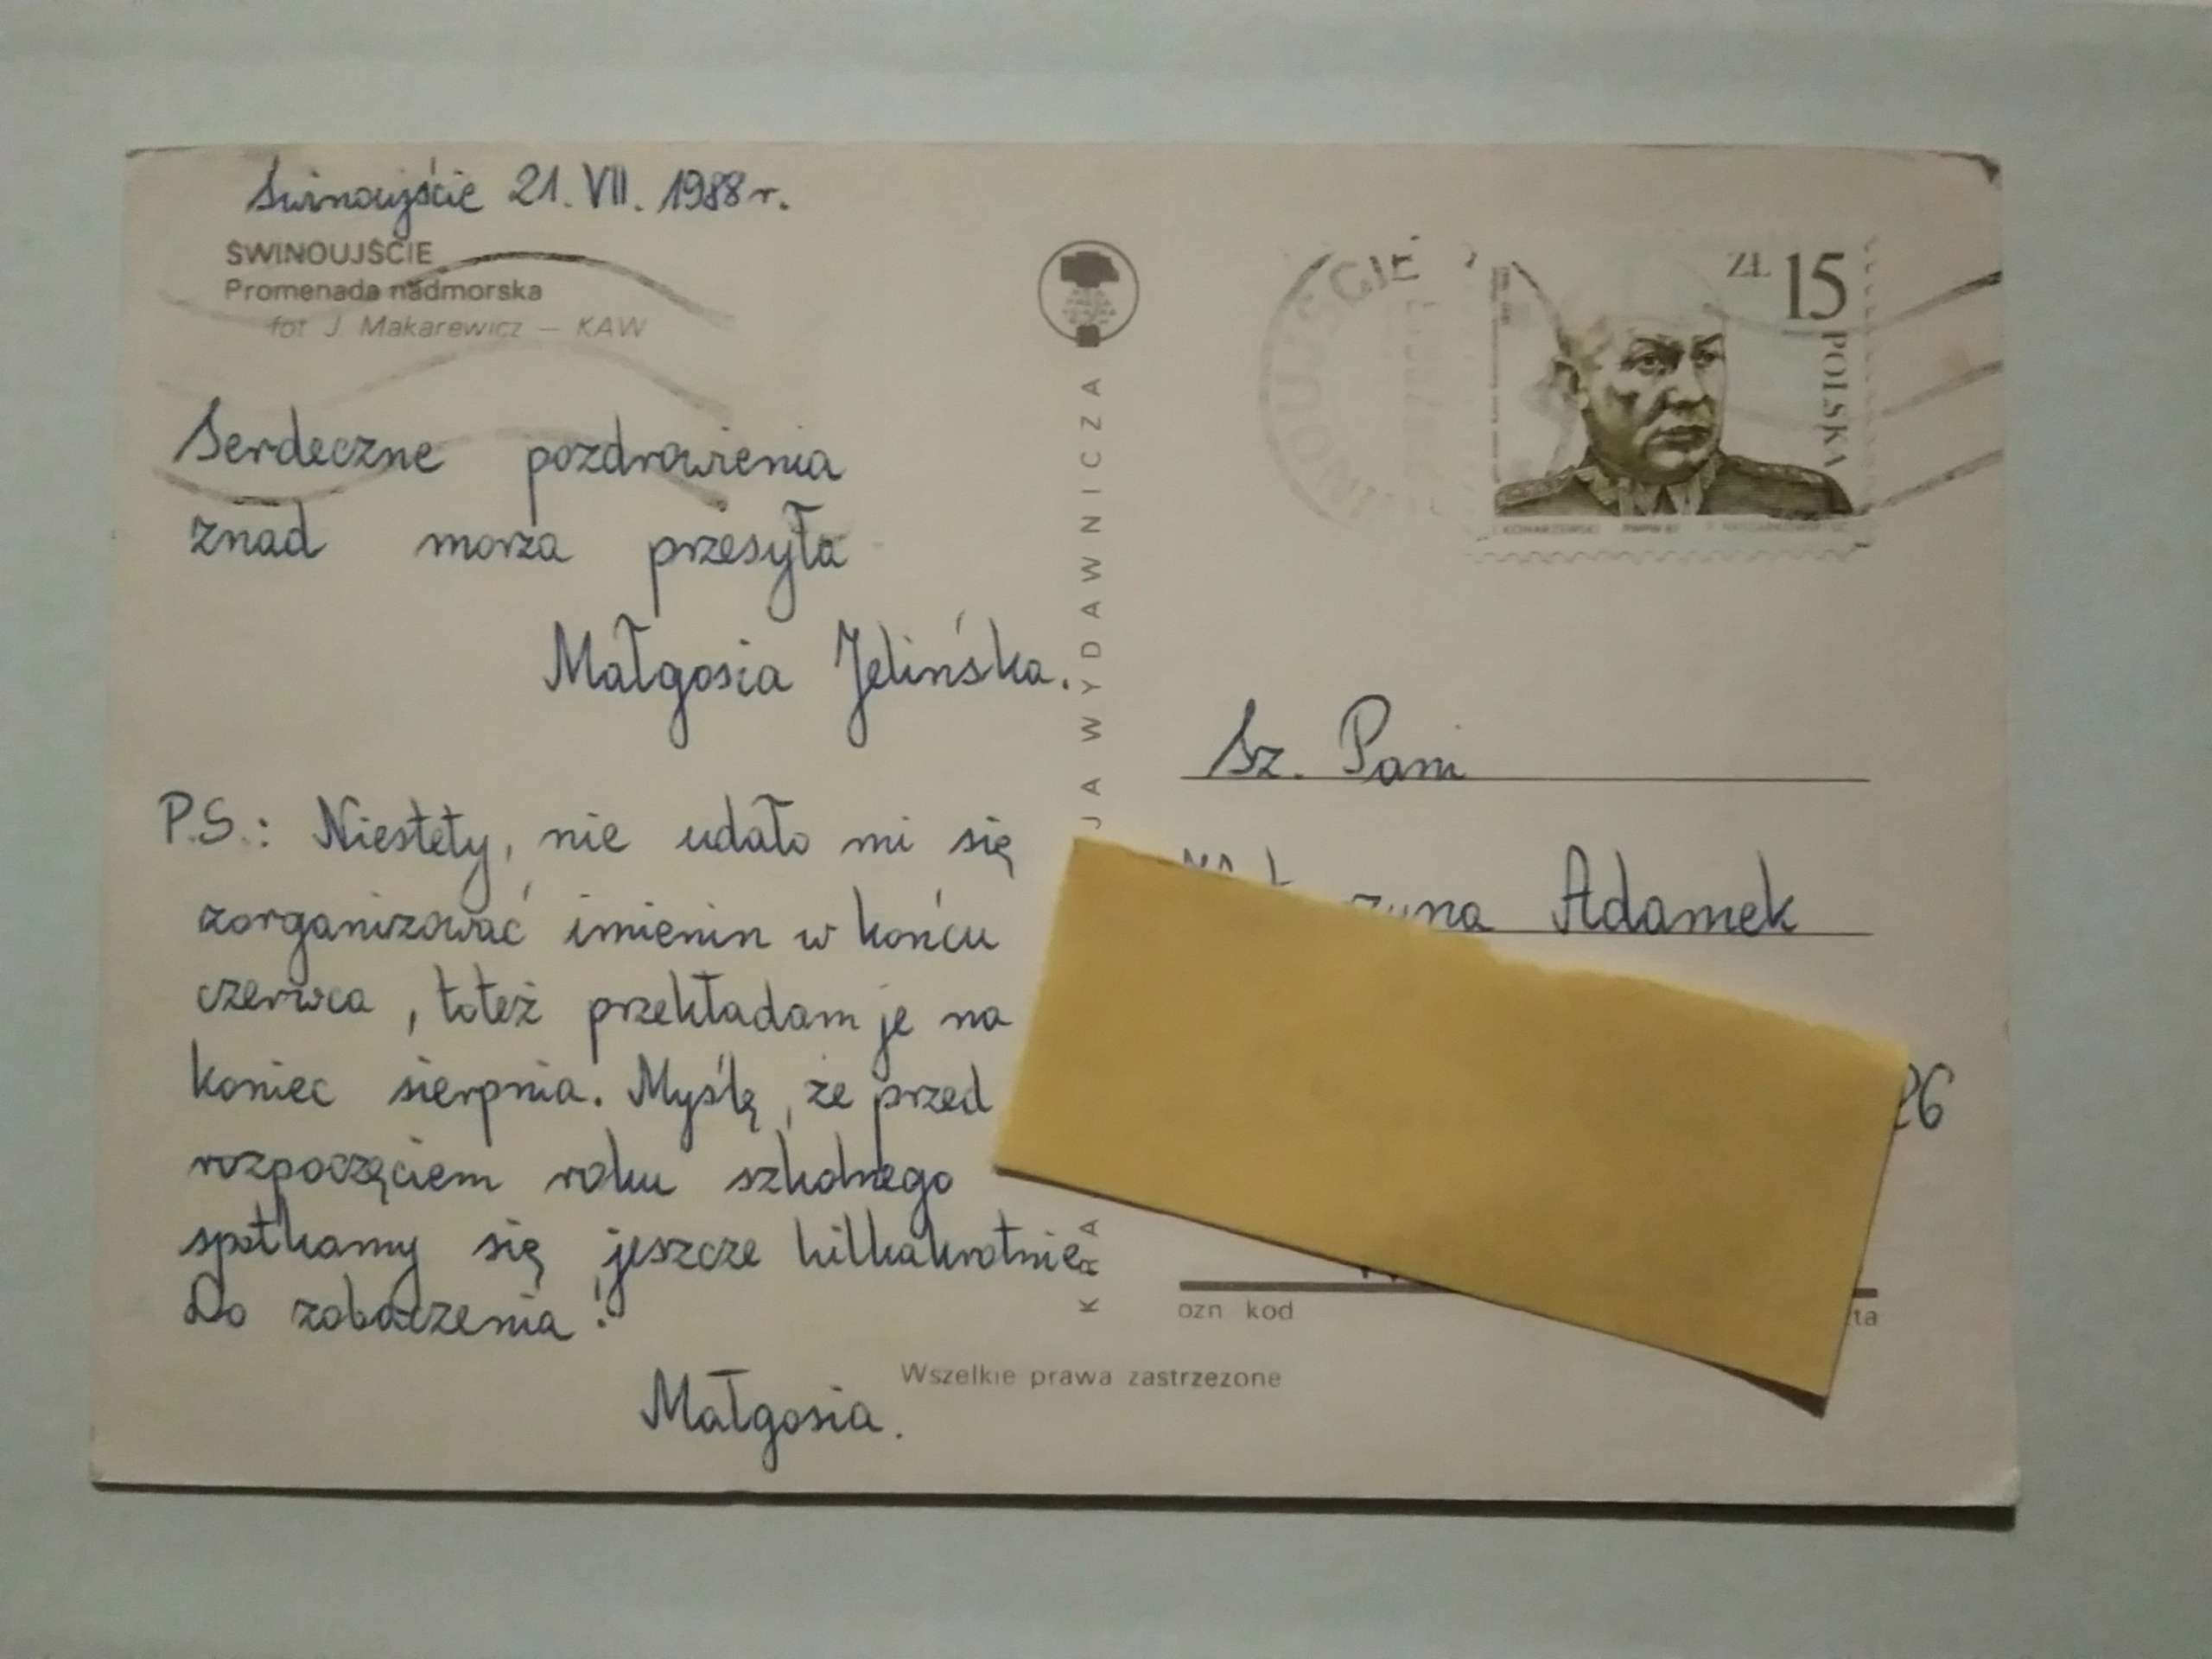 Świnoujście 21. VII. 1988 r.
ŚWINOUJŚCIE
Promenada nadmorska
fot J. Makarewicz — KAW
Serdeczne pozdrowienia
znad morza przesyła
Małgosia Jelińska.
P.S.: Niestety, nie udało mi się
zorganizować imienin w końcu
czerwca, toteż przekładam je na
koniec sierpnia. Myślę, że przed
rozpoczęciem roku szkolnego
spotkamy się jeszcze kilkakrotnie
Do zobaczenia!
Małgosia.
KRA JA WYDAWNICZA
Wszelkie prawa zastrzezone
INOUJŚCIE
ZŁ 15
POLSKA
Sz. Pani
zyna Adamek
26
ozn kod
zta